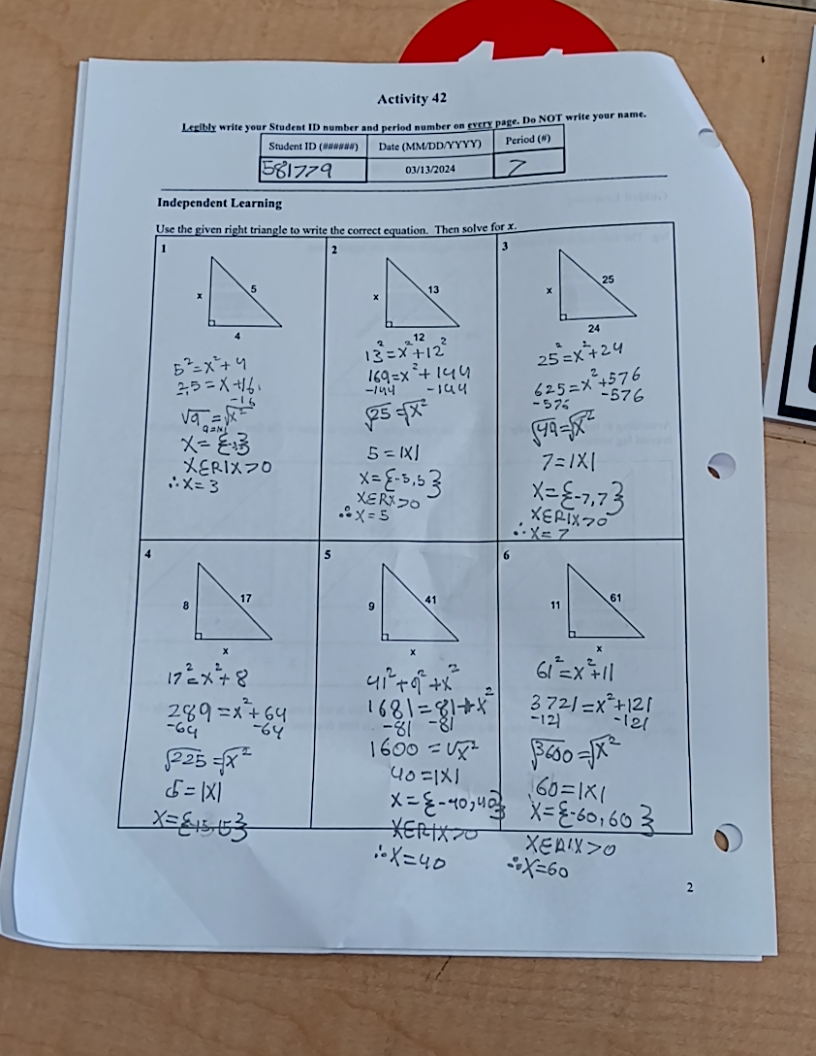 Activity 42
Legibly write your Student ID number and period number on every page. Do NOT write your name.
Student ID (######) Date (MM/DD/YYYY) Period (#)
581779 03/13/2024 7
Independent Learning
Use the given right triangle to write the correct equation. Then solve for x.
1
x 5
4
5²=x²+4
25=x+16
-16
√9=√x²
9=|x|
X={-3,3}
XERIX>0
∴X=3
2
x 13
12
13²=x²+12²
169=x²+144
-144 -144
√25=√x²
5=|X|
X={-5,5}
XERX>0
∴X=5
3
x 25
24
25²=x²+24
625=x²+576
-576 -576
√49=√x²
7=|X|
X={-7,7}
XERIX>0
∴X=7
4
8 17
x
17²=x²+8
289=x²+64
-64 -64
√225=√x²
=|X|
5
9 41
x
41²+9²+x²
1681=81+x²
-81 -81
1600=√x²
40=|X|
X={-40,40}
XERIX>0
∴X=40
6
11 61
x
61²=x²+11
3721=x²+121
-121 -121
√3600=√x²
60=|X|
X={-60,60}
XERIX>0
∴X=60
2